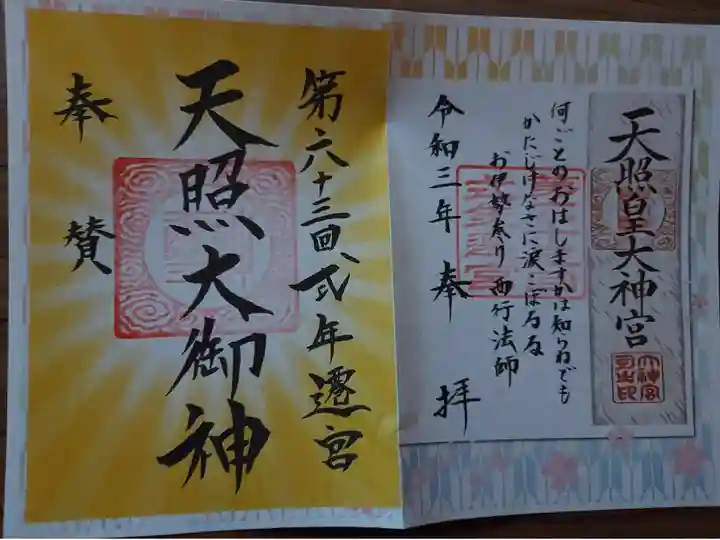 天照皇大神宮
大神宮
何ごとのおはしますかは知らねども
かたじけなさに涙こぼるる
お伊勢参り 西行法師
令和三年 奉拝
第六十三回、式年遷宮
天照大御神
奉賛